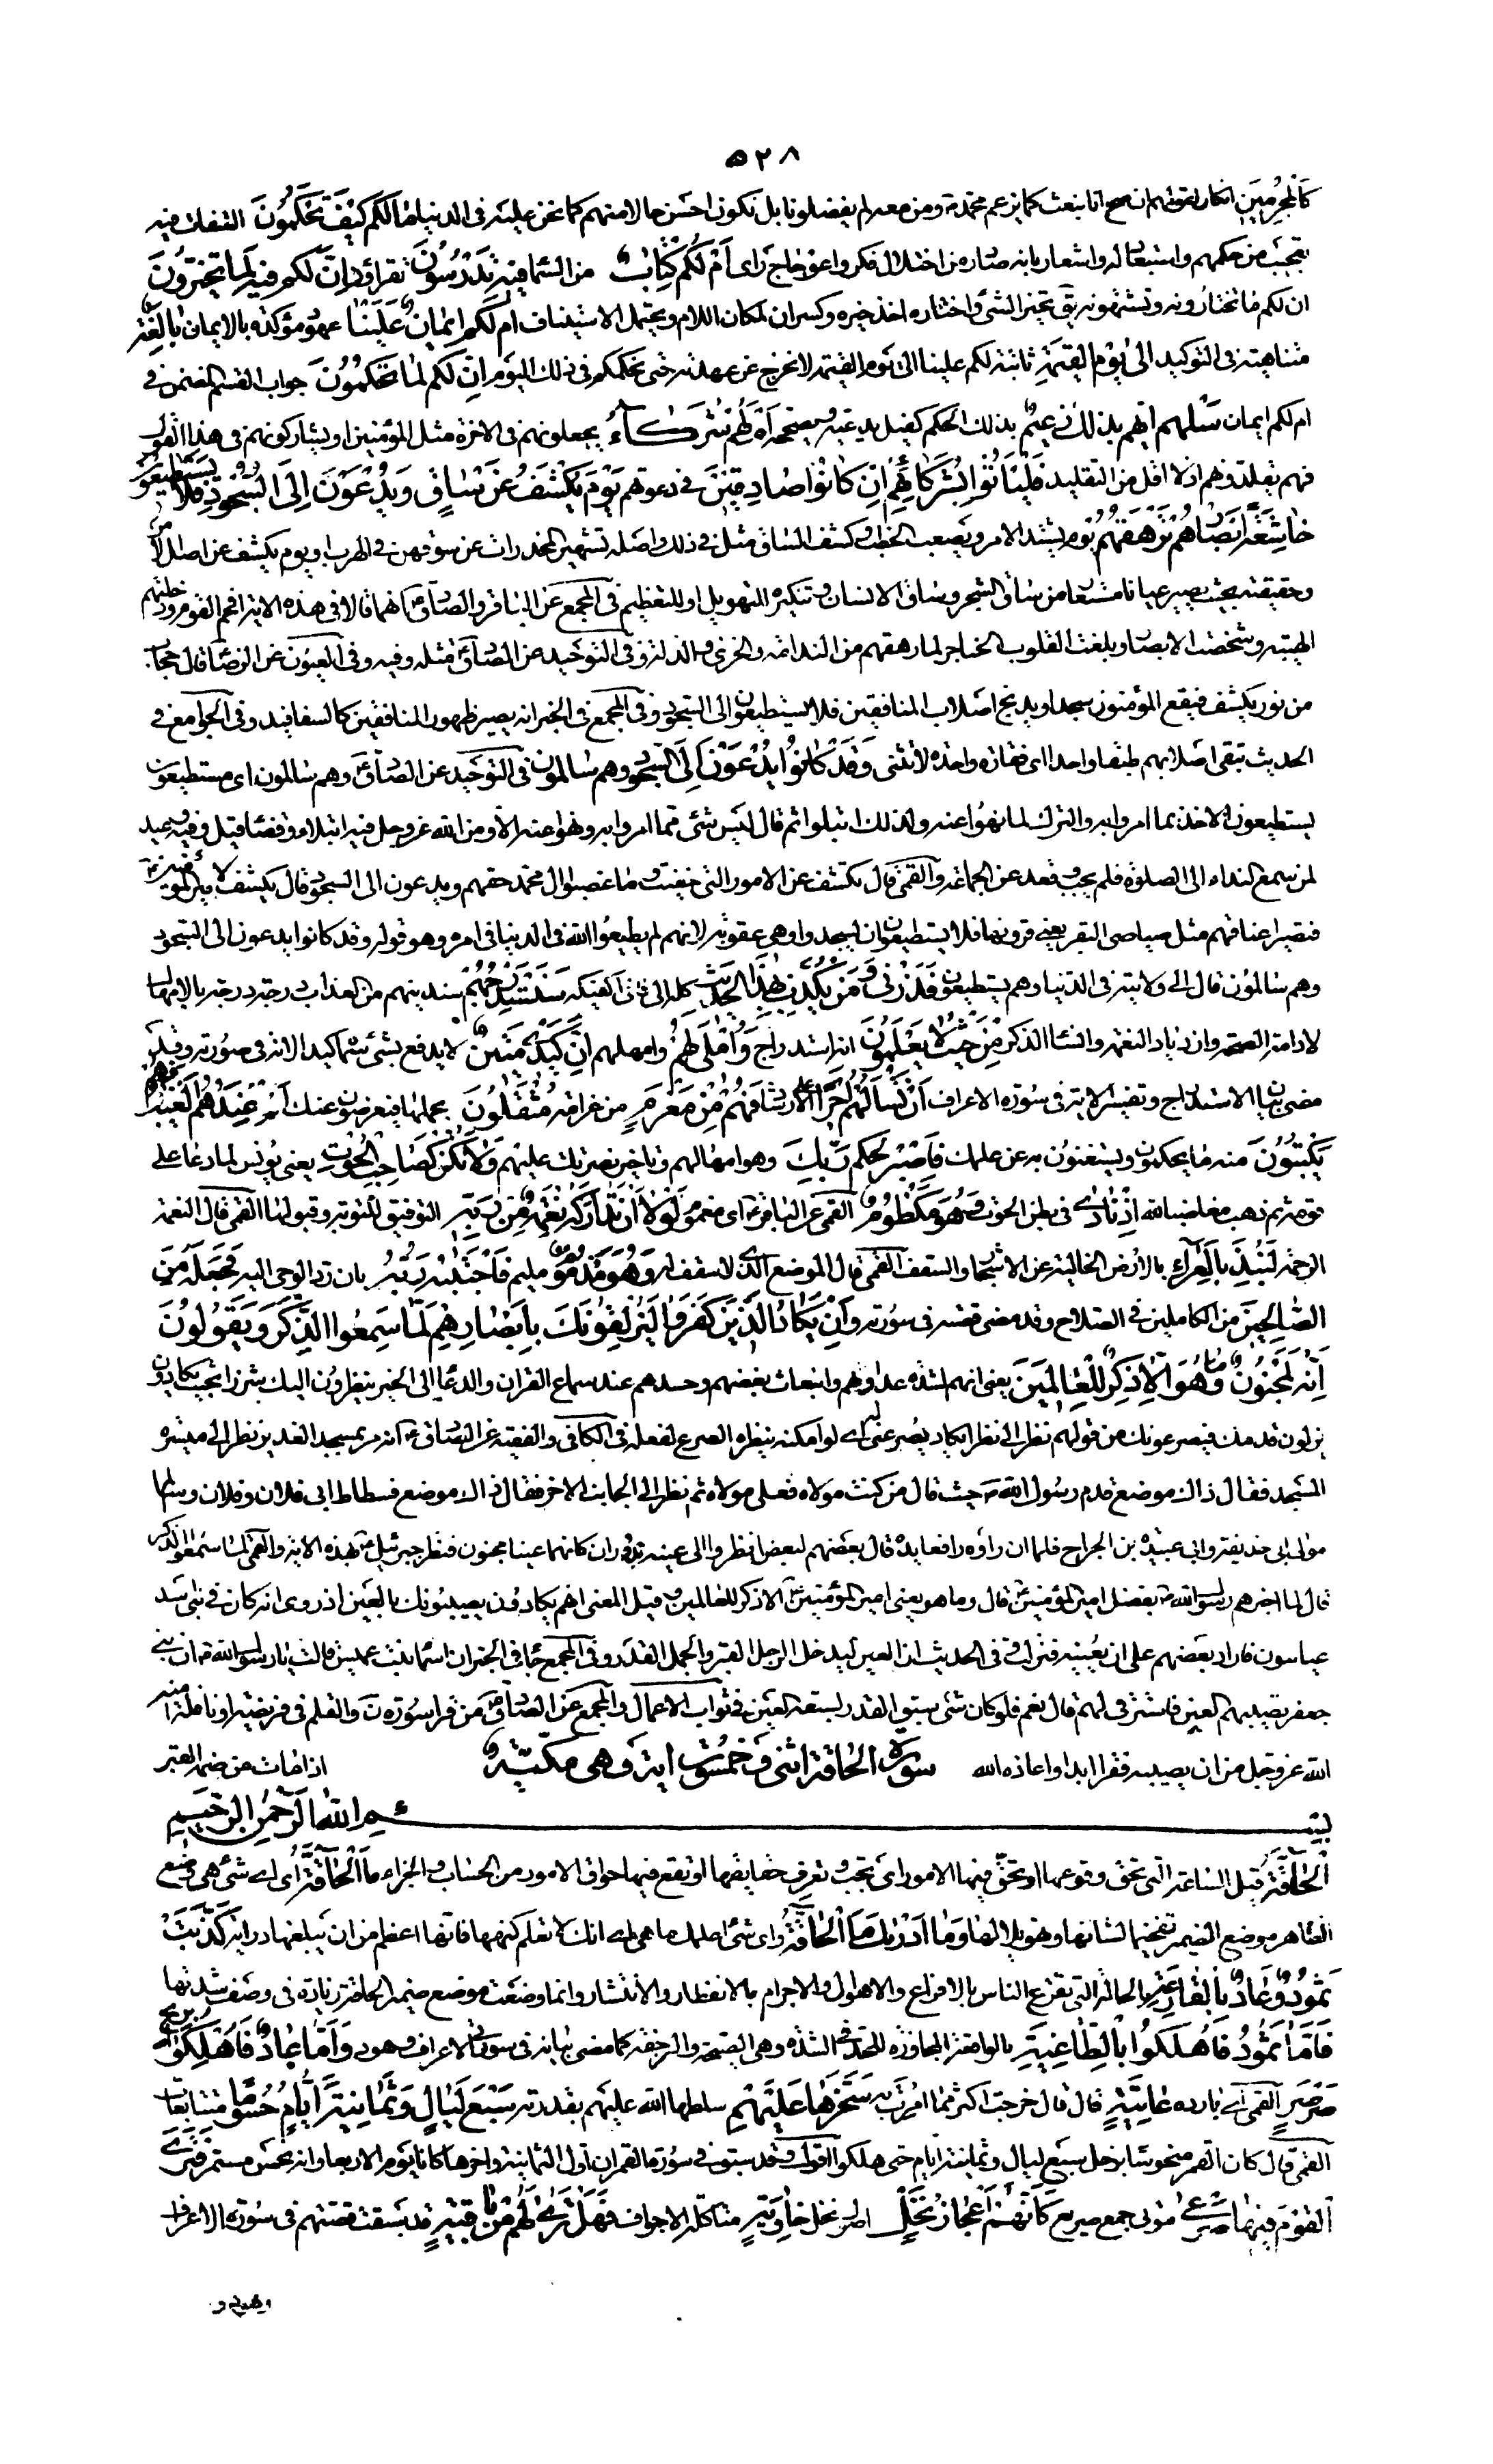 ٥٢٨
كَالْمُجْرِمِينَ انكار لقولهم ان صح انا نبعث كما يزعم محمد ص ومن معه لم يفضلونا بل نكون احسن حالا منهم كما نحن عليه فى الدنيا مَا لَكُمْ كَيْفَ تَحْكُمُونَ التفات فيه
تعجب من حكمهم واستبعاد له واشعار بانه صادر من اختلال فكر واعوجاج راى أَمْ لَكُمْ كِتَابٌ من السماء فِيهِ تَدْرُسُونَ تقرؤن إِنَّ لَكُمْ فِيهِ لَمَا تَخَيَّرُونَ
ان لكم ما تختارونه وتشتهونه يق تخير الشئ واختاره اخذ خيره وكسر ان لمكان اللام ويحتمل الاستيناف أَمْ لَكُمْ أَيْمَانٌ عَلَيْنَا عهود مؤكدة بالايمان بَالِغَةٌ
متناهية فى التوكيد إِلَى يَوْمِ الْقِيَمَةِ ثابتة لكم علينا الى يوم القيمة لا نخرج عن عهدته حتى نحكمكم فى ذلك اليوم إِنَّ لَكُمْ لَمَا تَحْكُمُونَ جواب القسم المضمن فى
ام لكم ايمان سَلْهُمْ أَيُّهُمْ بِذَلِكَ زَعِيمٌ بذلك الحكم كفيل يدعيه ويصححه أَمْ لَهُمْ شُرَكَاءُ يجعلونهم فى الاخرة مثل المؤمنين او يشاركونهم فى هذا القول
فهم يقلدونهم اذ لا اقل من التقليد فَلْيَأْتُوا بِشُرَكَائِهِمْ إِنْ كَانُوا صَادِقِينَ فى دعوهم يَوْمَ يُكْشَفُ عَنْ سَاقٍ وَيُدْعَوْنَ إِلَى السُّجُودِ فَلَا يَسْتَطِيعُونَ
خَاشِعَةً أَبْصَارُهُمْ تَرْهَقُهُمْ يوم يشتد الامر ويصعب الخطب وكشف الساق مثل فى ذلك واصله تشمير المخدرات عن سوقهن فى الهرب او يوم يكشف عن اصل الامر
وحقيقته بحيث يصير عيانا مستعار من ساق الشجر وساق الانسان وتنكيره للتهويل او للتعظيم فى المجمع عن الباقر والصادق ع انهما قالا فى هذه الاية افحم القوم ودخلتهم
الهيبة وشخصت الابصار وبلغت القلوب الحناجر لما رهقهم من الندامة والخزى والذلة وفى التوحيد عن الصادق ع مثله وفيه وفى العيون عن الرضا ع قال حجاب
من نور يكشف فيقع المؤمنون سجدا ويدمج اصلاب المنافقين فلا يستطيعون الى السجود وفى المجمع فى الخبر انه يصير ظهور المنافقين كالسفافيد وفى الجوامع فى
الحديث تبقى اصلابهم طبقا واحدا اى فقارة واحدة لا تنثنى وَقَدْ كَانُوا يُدْعَوْنَ إِلَى السُّجُودِ وَهُمْ سَالِمُونَ فى التوحيد عن الصادق ع وهم سالمون اى مستطيعون
يستطيعون الاخذ بما امروا به والترك لما نهوا عنه ولذلك ابتلوا ثم قال ليس شئ مما امروا به ونهوا عنه الا ومن الله عز وجل فيه ابتلاء وقضاء قيل وفيه وعيد
لمن سمع النداء الى الصلوة فلم يجب وقعد عن الجماعة والقمى قال يكشف عن الامور التى خفيت وما غصبوا ال محمد حقهم ويدعون الى السجود قال يكشف لامير المؤمنين ع
فتصير اعناقهم مثل صياصى البقر يعنى قرونها فلا يستطيعون ان يسجدوا وهى عقوبة لانهم لم يطيعوا الله فى الدنيا فى امره وهو قوله وقد كانوا يدعون الى السجود
وهم سالمون قال الى ولايته فى الدنيا وهم يستطيعون فَذَرْنِي وَمَنْ يُكَذِّبُ بِهَذَا الْحَدِيثِ كله الى فانى اكفيكه سَنَسْتَدْرِجُهُمْ سندنيهم من العذاب درجة درجة بالامهال
وادامة الصحة وازدياد النعمة وانساء الذكر مِنْ حَيْثُ لَا يَعْلَمُونَ انه استدراج وَأُمْلِي لَهُمْ وامهلهم إِنَّ كَيْدِي مَتِينٌ لا يدفع بشئ سماه كيدا لانه فى صورته وقد
مضى بيان الاستدراج وتفسير الاية فى سورة الاعراف أَمْ تَسْأَلُهُمْ أَجْرًا على الارشاد فَهُمْ مِنْ مَغْرَمٍ من غرامة مُثْقَلُونَ بحملها فيعرضون عنك أَمْ عِنْدَهُمُ الْغَيْبُ فَهُمْ
يَكْتُبُونَ منه ما يحكمون ويستغنون به عن علمك فَاصْبِرْ لِحُكْمِ رَبِّكَ وهو امهالهم وتاخير نصرتك عليهم وَلَا تَكُنْ كَصَاحِبِ الْحُوتِ يعنى يونس لما دعا على
قومه ثم ذهب مغاضبا لله إِذْ نَادَى فى بطن الحوت وَهُوَ مَكْظُومٌ القمى عن الباقر ع اى مغموم لَوْلَا أَنْ تَدَارَكَهُ نِعْمَةٌ مِنْ رَبِّهِ التوفيق للتوبة وقبولها القمى قال النعمة
الرحمة لَنُبِذَ بِالْعَرَاءِ بالارض الخالية عن الاشجار والسقف القمى قال الموضع الذى لا سقف له وَهُوَ مَذْمُومٌ مليم فَاجْتَبَيهُ رَبُّهُ بان رد الوحى اليه فَجَعَلَهُ مِنَ
الصَّالِحِينَ من الكاملين فى الصلاح وقد مضى قصته فى سورته وَإِنْ يَكَادُ الَّذِينَ كَفَرُوا لَيُزْلِقُونَكَ بِأَبْصَارِهِمْ لَمَّا سَمِعُوا الذِّكْرَ وَيَقُولُونَ
إِنَّهُ لَمَجْنُونٌ وَمَا هُوَ إِلَّا ذِكْرٌ لِلْعَالَمِينَ يعنى انهم لشدة عداوتهم وانبعاث بغضهم وحسدهم عند سماع القران والدعاء الى الخير ينظرون اليك شزرا بحيث يكادون
يزلون قدمك فيصرعونك من قولهم نظر الى نظرا يكاد يصرعنى اى لو امكنه بنظره الصرع لفعله فى الكافى والفقيه عن الصادق ع انه مر بمسجد الغدير نظر الى ميسرة
المسجد فقال ذاك موضع قدم رسول الله ص حيث قال من كنت مولاه فعلى مولاه ثم نظر الى الجانب الاخر فقال ذاك موضع فسطاط ابى فلان وفلان وسالم
مولى ابى حذيفة وابى عبيدة بن الجراح فلما ان راوه رافعا يده قال بعضهم لبعض انظروا الى عينيه تدوران كانهما عينا مجنون فنزل جبرئيل ع بهذه الاية والقمى لما سمعوا الذكر
قال لما اخبرهم رسول الله ص بفضل امير المؤمنين ع قال وما هو يعنى امير المؤمنين ع الا ذكر للعالمين وقيل المعنى انهم يكادون يصيبونك بالعين اذ روى انه كان فى بنى اسد
عيانون فاراد بعضهم على ان يعينه فنزلت وفى الحديث ان العين ليدخل الرجل القبر والجمل القدر وفى المجمع جاء فى الخبر ان اسماء بنت عميس قالت يا رسول الله ص ان بنى
جعفر تصيبهم العين فاسترقى لهم قال نعم فلو كان شئ يسبق القدر لسبقه العين فى ثواب الاعمال والمجمع عن الصادق ع من قرا سورة ن والقلم فى فريضة او نافلة امنه
الله عز وجل من ان يصيبه فقر ابدا واعاذه الله سورة الحاقة اثنى وخمسون اية وهى مكية اذا مات من ضمة القبر
بِسْمِ اللهِ الرَّحْمَنِ الرَّحِيمِ
الْحَاقَّةُ قيل الساعة التى تحق وقوعها او تحق فيها الامور اى تجب وتعرف حقايقها او تقع فيها حواق الامور من الحساب والجزاء مَا الْحَاقَّةُ اى اى شئ هى وضع
الظاهر موضع الضمير تفخيما لشانها وتهويلا لها وَمَا أَدْرَيكَ مَا الْحَاقَّةُ واى شئ اعلمك ما هى اى انك لا تعلم كنهها فانها اعظم من ان يبلغها دراية كَذَّبَتْ
ثَمُودُ وَعَادٌ بِالْقَارِعَةِ بالحالة التى تقرع الناس بالافزاع والاهوال والاجرام بالانفطار والانتشار وانما وضعت موضع ضمير الحاقة زيادة فى وصف شدتها
فَأَمَّا ثَمُودُ فَأُهْلِكُوا بِالطَّاغِيَةِ بالواقعة المجاوزة للحد فى الشدة وهى الصيحة والرجفة كما مضى بيانه فى سورتى الاعراف وهود وَأَمَّا عَادٌ فَأُهْلِكُوا بِرِيحٍ
صَرْصَرٍ القمى اى باردة عَاتِيَةٍ قال قال خرجت اكثر مما امرت به سَخَّرَهَا عَلَيْهِمْ سلطها الله عليهم بقدرته سَبْعَ لَيَالٍ وَثَمَانِيَةَ أَيَّامٍ حُسُومًا متتابعات
القمى قال كان القمر منحوسا بزحل سبع ليال وثمانية ايام حتى هلكوا اقول وقد سبق فى سورة القمر ان اول الثمانية واخرها كانا يوم الاربعاء وانه نحس مستمر فَتَرَى
الْقَوْمَ فِيهَا صَرْعَى موتى جمع صريع كَأَنَّهُمْ أَعْجَازُ نَخْلٍ اصول نخل خَاوِيَةٍ متاكلة الاجواف فَهَلْ تَرَى لَهُمْ مِنْ بَاقِيَةٍ قد سبقت قصتهم فى سورة الاعراف